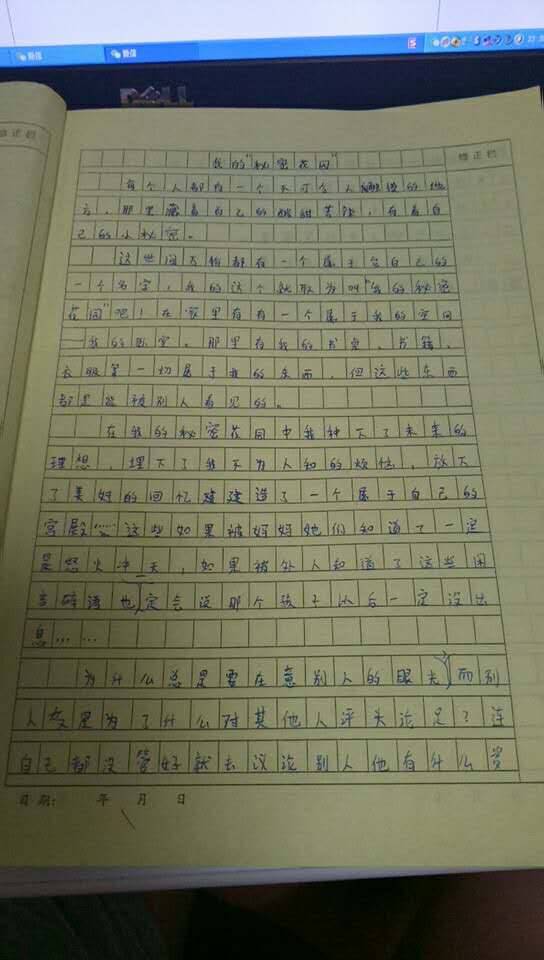 微信
微信
DELL
修正栏
修正栏
我的“秘密花园”
每个人都有一个不可令人触摸的地
方，那里藏着自己的酸甜苦辣，有着自
己的小秘密。
这世间万物都有一个属于它自己的
一个名字，我的这个就取为叫“我的秘密
花园”吧！在家里有有一个属于我的空间
——我的卧室。那里有我的书桌、书籍、
衣服等一切属于我的东西，但这些东西
都是能被别人看见的。
在我的秘密花园中我种下了未来的
理想，埋下了我不为人知的烦恼，放下
了美好的回忆建建造了一个属于自己的
宫殿……这些如果被妈妈她们知道了一定
是怒火冲天，如果被外人知道了这些闲
言碎语也一定会说那个孩子以后一定没出
息……
为什么总是要在意别人的眼光，而别
人又是为了什么对其他人评头论足？连
自己都没管好就去议论别人他有什么资
日期： 年 月 日